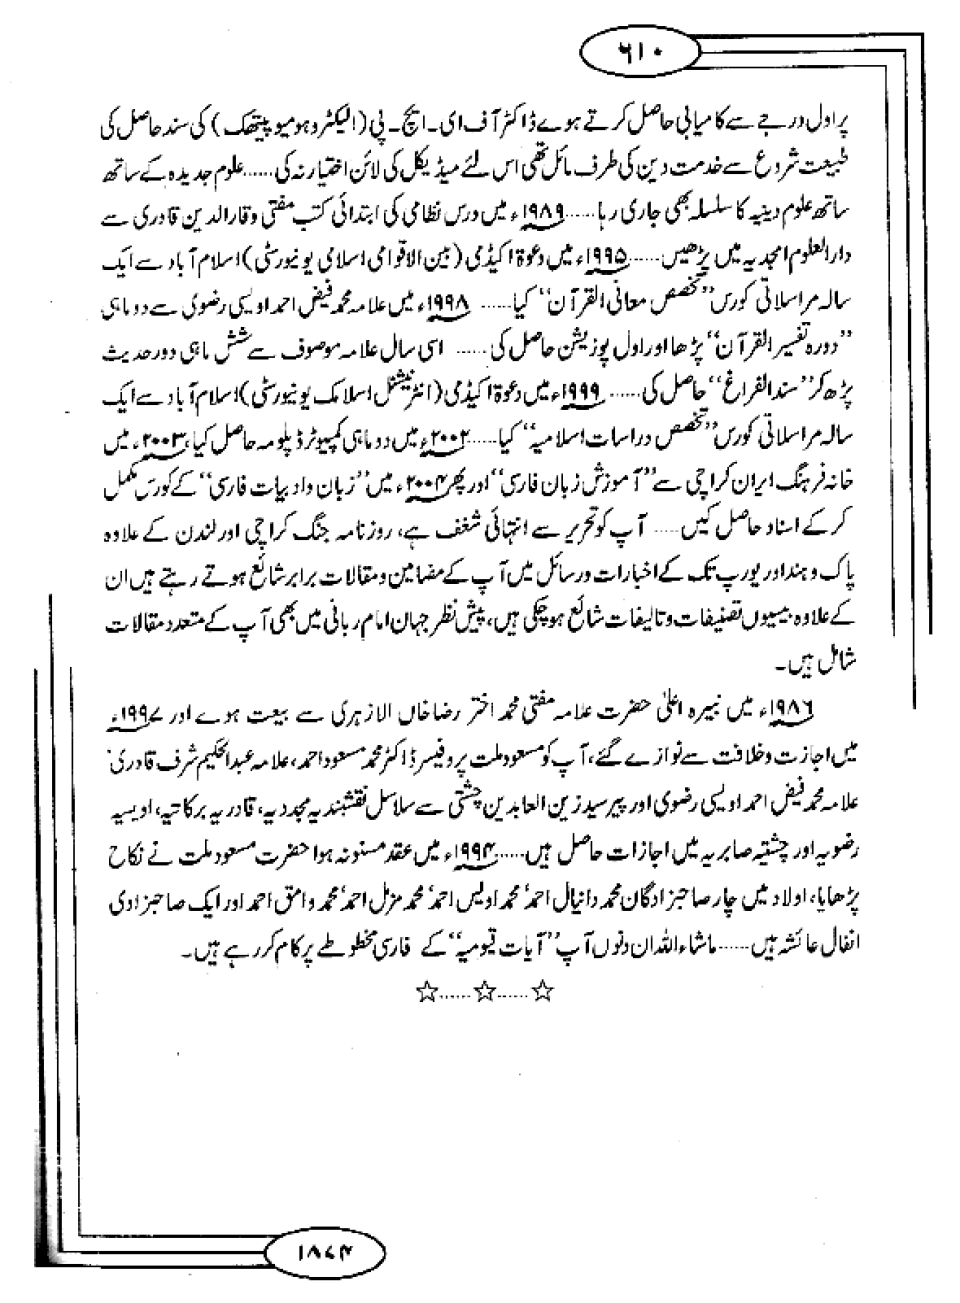 ۶۱۰
پر اول درجے سے کامیابی حاصل کرتے ہوے ڈاکٹر آف ای۔ ایچ۔ پی (الیکٹرو ہومیو پیتھک) کی سند حاصل کی
طبیعت شروع سے خدمت دین کی طرف مائل تھی اس لئے میڈیکل کی لائن اختیار نہ کی...... علوم جدیدہ کے ساتھ
ساتھ علوم دینیہ کا سلسلہ بھی جاری رہا...... ۱۹۸۹ء میں درس نظامی کی ابتدائی کتب مفتی وقار الدین قادری سے
دارالعلوم امجدیہ میں پڑھیں...... ۱۹۹۵ء میں دعوۃ اکیڈمی (بین الاقوامی اسلامی یونیورسٹی) اسلام آباد سے ایک
سالہ مراسلاتی کورس ”تخصص معانی القرآن“ کیا...... ۱۹۹۸ء میں علامہ محمد فیض احمد اویسی رضوی سے دو ماہی
”دورہ تفسیر القرآن“ پڑھا اور اول پوزیشن حاصل کی...... اسی سال علامہ موصوف سے شش ماہی دور حدیث
پڑھ کر ”سند الفراغ“ حاصل کی...... ۱۹۹۹ء میں دعوۃ اکیڈمی (انٹرنیشنل اسلامک یونیورسٹی) اسلام آباد سے ایک
سالہ مراسلاتی کورس ”تخصص دراسات اسلامیہ“ کیا..... ۲۰۰۲ء میں دو ماہی کمپیوٹر ڈپلومہ حاصل کیا، ۲۰۰۳ء میں
خانہ فرہنگ ایران کراچی سے ”آموزش زبان فارسی“ اور پھر ۲۰۰۴ء میں ”زبان و ادبیات فارسی“ کے کورس مکمل
کر کے اسناد حاصل کیں..... آپ کو تحریر سے انتہائی شغف ہے، روزنامہ جنگ کراچی اور لندن کے علاوہ
پاک و ہند اور یورپ تک کے اخبارات ورسائل میں آپ کے مضامین و مقالات برابر شائع ہوتے رہتے ہیں ان
کے علاوہ بیسیوں تصنیفات و تالیفات شائع ہوچکی ہیں، پیش نظر جہان امام ربانی میں بھی آپ کے متعدد مقالات
شامل ہیں۔
۱۹۸۶ء میں نبیرہ اعلیٰ حضرت علامہ مفتی محمد اختر رضا خاں الازہری سے بیعت ہوے اور ۱۹۹۷ء
میں اجازت وخلافت سے نوازے گئے، آپ کو مسعود ملت پروفیسر ڈاکٹر محمد مسعود احمد، علامہ عبدالحکیم شرف قادری‘
علامہ محمد فیض احمد اویسی رضوی اور پیر سید زین العابدین چشتی سے سلاسل نقشبندیہ مجددیہ، قادریہ برکاتیہ، اویسیہ
رضویہ اور چشتیہ صابریہ میں اجازات حاصل ہیں..... ۱۹۹۴ء میں عقد مسنونہ ہوا حضرت مسعود ملت نے نکاح
پڑھایا، اولاد میں چار صاحبزادگان محمد دانیال احمد‘ محمد اویس احمد‘ محمد مزمل احمد‘ محمد وامق احمد اور ایک صاحبزادی
انفال عائشہ ہیں...... ماشاء اللہ ان دنوں آپ ”آیات قیومیہ“ کے فارسی مخطوطے پر کام کر رہے ہیں۔
☆......☆......☆
۱۸۷۴